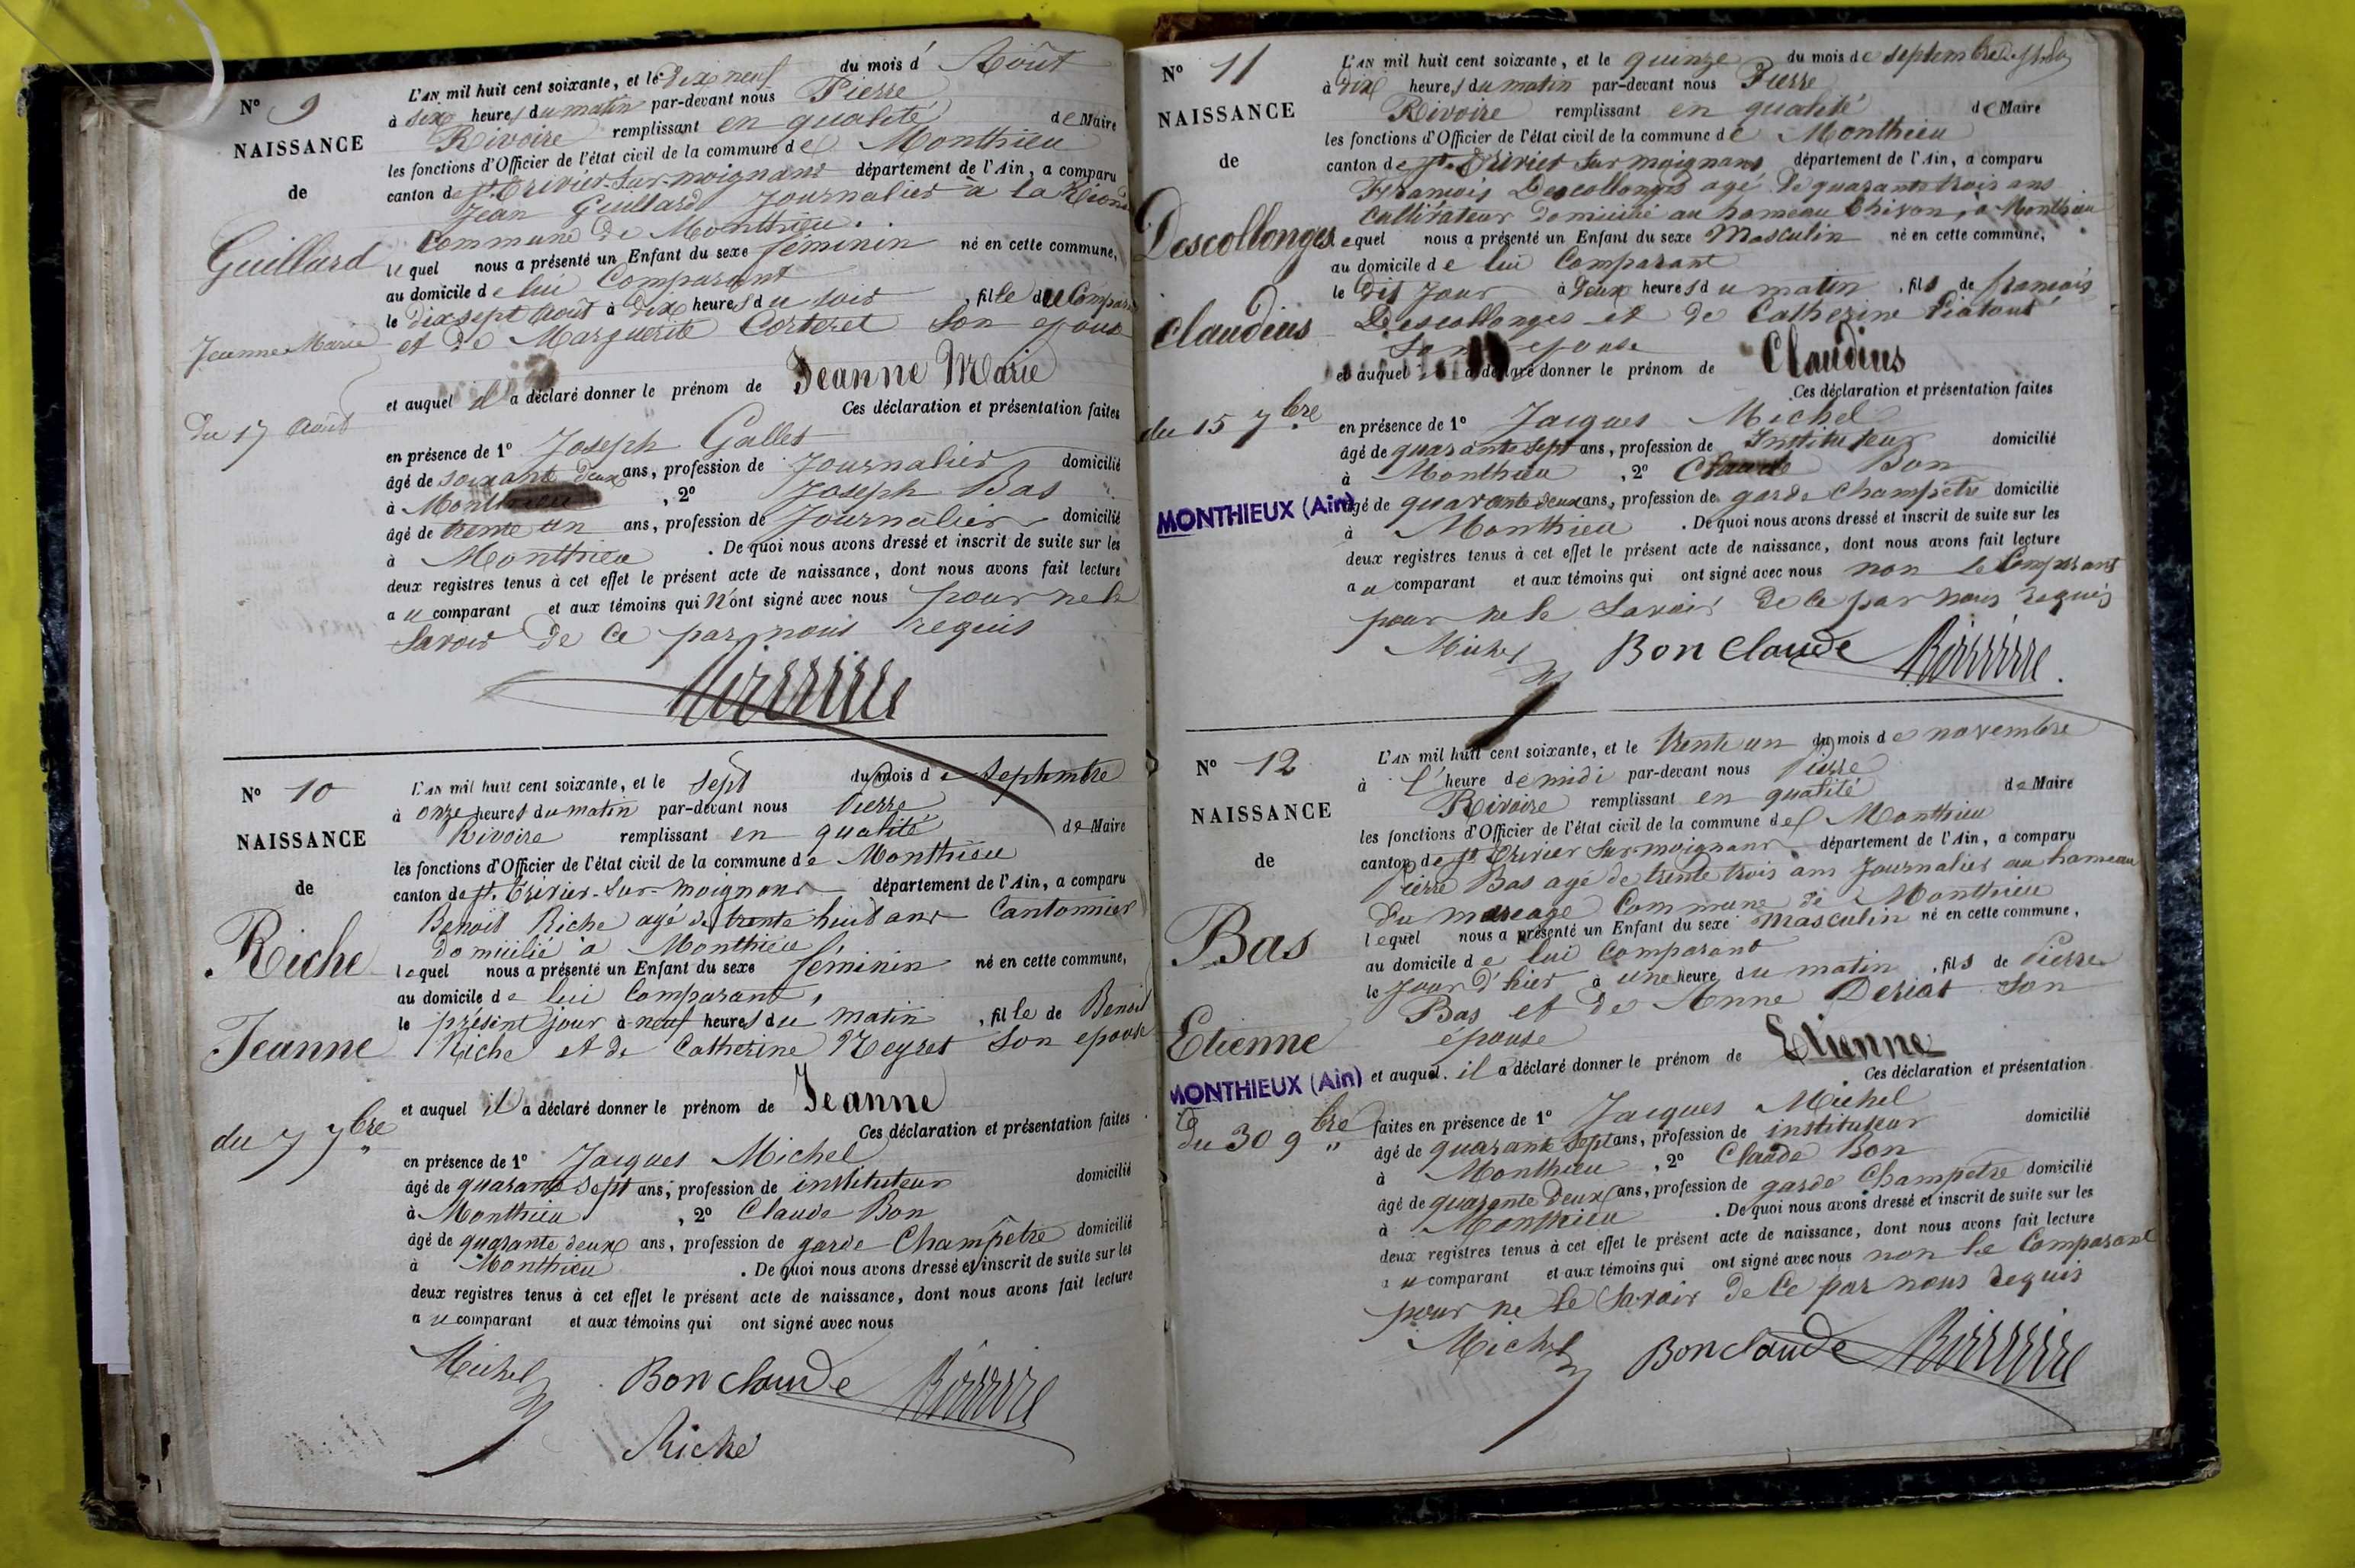 N° 9
NAISSANCE
de
Guillard
Jeanne Marie
du 17 Août
L'AN mil huit cent soixante, et le dix neuf du mois d' Août
à six heures du matin par-devant nous Pierre
Rivoire remplissant en qualité de Maire
les fonctions d'Officier de l'état civil de la commune de Monthieu
canton de St. Trivier-sur-moignans département de l'Ain, a comparu
Jean Guillard Journalier à la
Commune de Monthieu.
lequel nous a présenté un Enfant du sexe féminin né en cette commune,
au domicile de lui Comparant
le dix sept août à dix heures du soir, fille du Comparant
et de Marguerite Corteret son epouse
et auquel il a déclaré donner le prénom de Jeanne Marie
Ces déclaration et présentation faites
en présence de 1° Joseph Gallet
âgé de soixante deux ans, profession de Journalier domicilié
à Monthieu, 2° Joseph Bas
âgé de trente un ans, profession de Journalier domicilié
à Monthieu. De quoi nous avons dressé et inscrit de suite sur les
deux registres tenus à cet effet le présent acte de naissance, dont nous avons fait lecture
au comparant et aux témoins qui n'ont signé avec nous pour ne le
savoir de ce par nous requis
Rivoire
N° 10
NAISSANCE
de
Riche
Jeanne
du 7 7bre
L'AN mil huit cent soixante, et le sept du mois de septembre
à onze heures du matin par-devant nous Pierre
Rivoire remplissant en qualité de Maire
les fonctions d'Officier de l'état civil de la commune de Monthieu
canton de St. Trivier-sur-moignans département de l'Ain, a comparu
Benoit Riche agé de trente huit ans Cantonnier
domicilié à Monthieu
lequel nous a présenté un Enfant du sexe féminin né en cette commune,
au domicile de lui Comparant,
le présent jour à neuf heures du matin, fille de Benoit
Riche et de Catherine Neyret son epouse
et auquel il a déclaré donner le prénom de Jeanne
Ces déclaration et présentation faites
en présence de 1° Jacques Michel
âgé de quarante sept ans, profession de instituteur domicilié
à Monthieu, 2° Claude Bon
âgé de quarante deux ans, profession de garde Champêtre domicilié
à Monthieu. De quoi nous avons dressé et inscrit de suite sur les
deux registres tenus à cet effet le présent acte de naissance, dont nous avons fait lecture
au comparant et aux témoins qui ont signé avec nous
Michel Bon Claude Rivoire
Riche
N° 11
NAISSANCE
de
Descollonges
claudius
du 15 7bre
MONTHIEUX (Ain)
L'AN mil huit cent soixante, et le quinze du mois de septembre
à dix heures du matin par-devant nous Pierre
Rivoire remplissant en qualité de Maire
les fonctions d'Officier de l'état civil de la commune de Monthieu
canton de St. Trivier sur moignans département de l'Ain, a comparu
François Descollonges agé de quarante trois ans
Cultivateur domicilié au hameau Chivon, à Monthieu
lequel nous a présenté un Enfant du sexe Masculin né en cette commune,
au domicile de lui Comparant
le dit jour à deux heures du matin, fils de françois
Descollonges et de Catherine
son epouse
et auquel il a déclaré donner le prénom de Claudius
Ces déclaration et présentation faites
en présence de 1° Jacques Michel
âgé de quarante sept ans, profession de Instituteur domicilié
à Monthieu, 2° Claude Bon
âgé de quarante deux ans, profession de garde Champêtre domicilié
à Monthieu. De quoi nous avons dressé et inscrit de suite sur les
deux registres tenus à cet effet le présent acte de naissance, dont nous avons fait lecture
au comparant et aux témoins qui ont signé avec nous non le Comparant
pour ne le savoir de ce par nous requis
Michel Bon Claude Rivoire
N° 12
NAISSANCE
de
Bas
Etienne
MONTHIEUX (Ain)
du 30 9bre
L'AN mil huit cent soixante, et le trente un du mois de novembre
à l'heure de midi par-devant nous Pierre
Rivoire remplissant en qualité de Maire
les fonctions d'Officier de l'état civil de la commune de Monthieu
canton de St. Trivier sur moignans département de l'Ain, a comparu
Pierre Bas agé de trente trois ans Journalier au hameau
du mareage Commune de Monthieu
lequel nous a présenté un Enfant du sexe Masculin né en cette commune,
au domicile de lui Comparant
le jour d'hier à une heure du matin, fils de Pierre
Bas et de Anne Deriat son
épouse
et auquel il a déclaré donner le prénom de Etienne
Ces déclaration et présentation
faites en présence de 1° Jacques Michel
âgé de quarante sept ans, profession de instituteur domicilié
à Monthieu, 2° Claude Bon
âgé de quarante deux ans, profession de garde Champêtre domicilié
à Monthieu. De quoi nous avons dressé et inscrit de suite sur les
deux registres tenus à cet effet le présent acte de naissance, dont nous avons fait lecture
au comparant et aux témoins qui ont signé avec nous non le Comparant
pour ne le savoir de ce par nous requis
Michel Bon Claude Rivoire